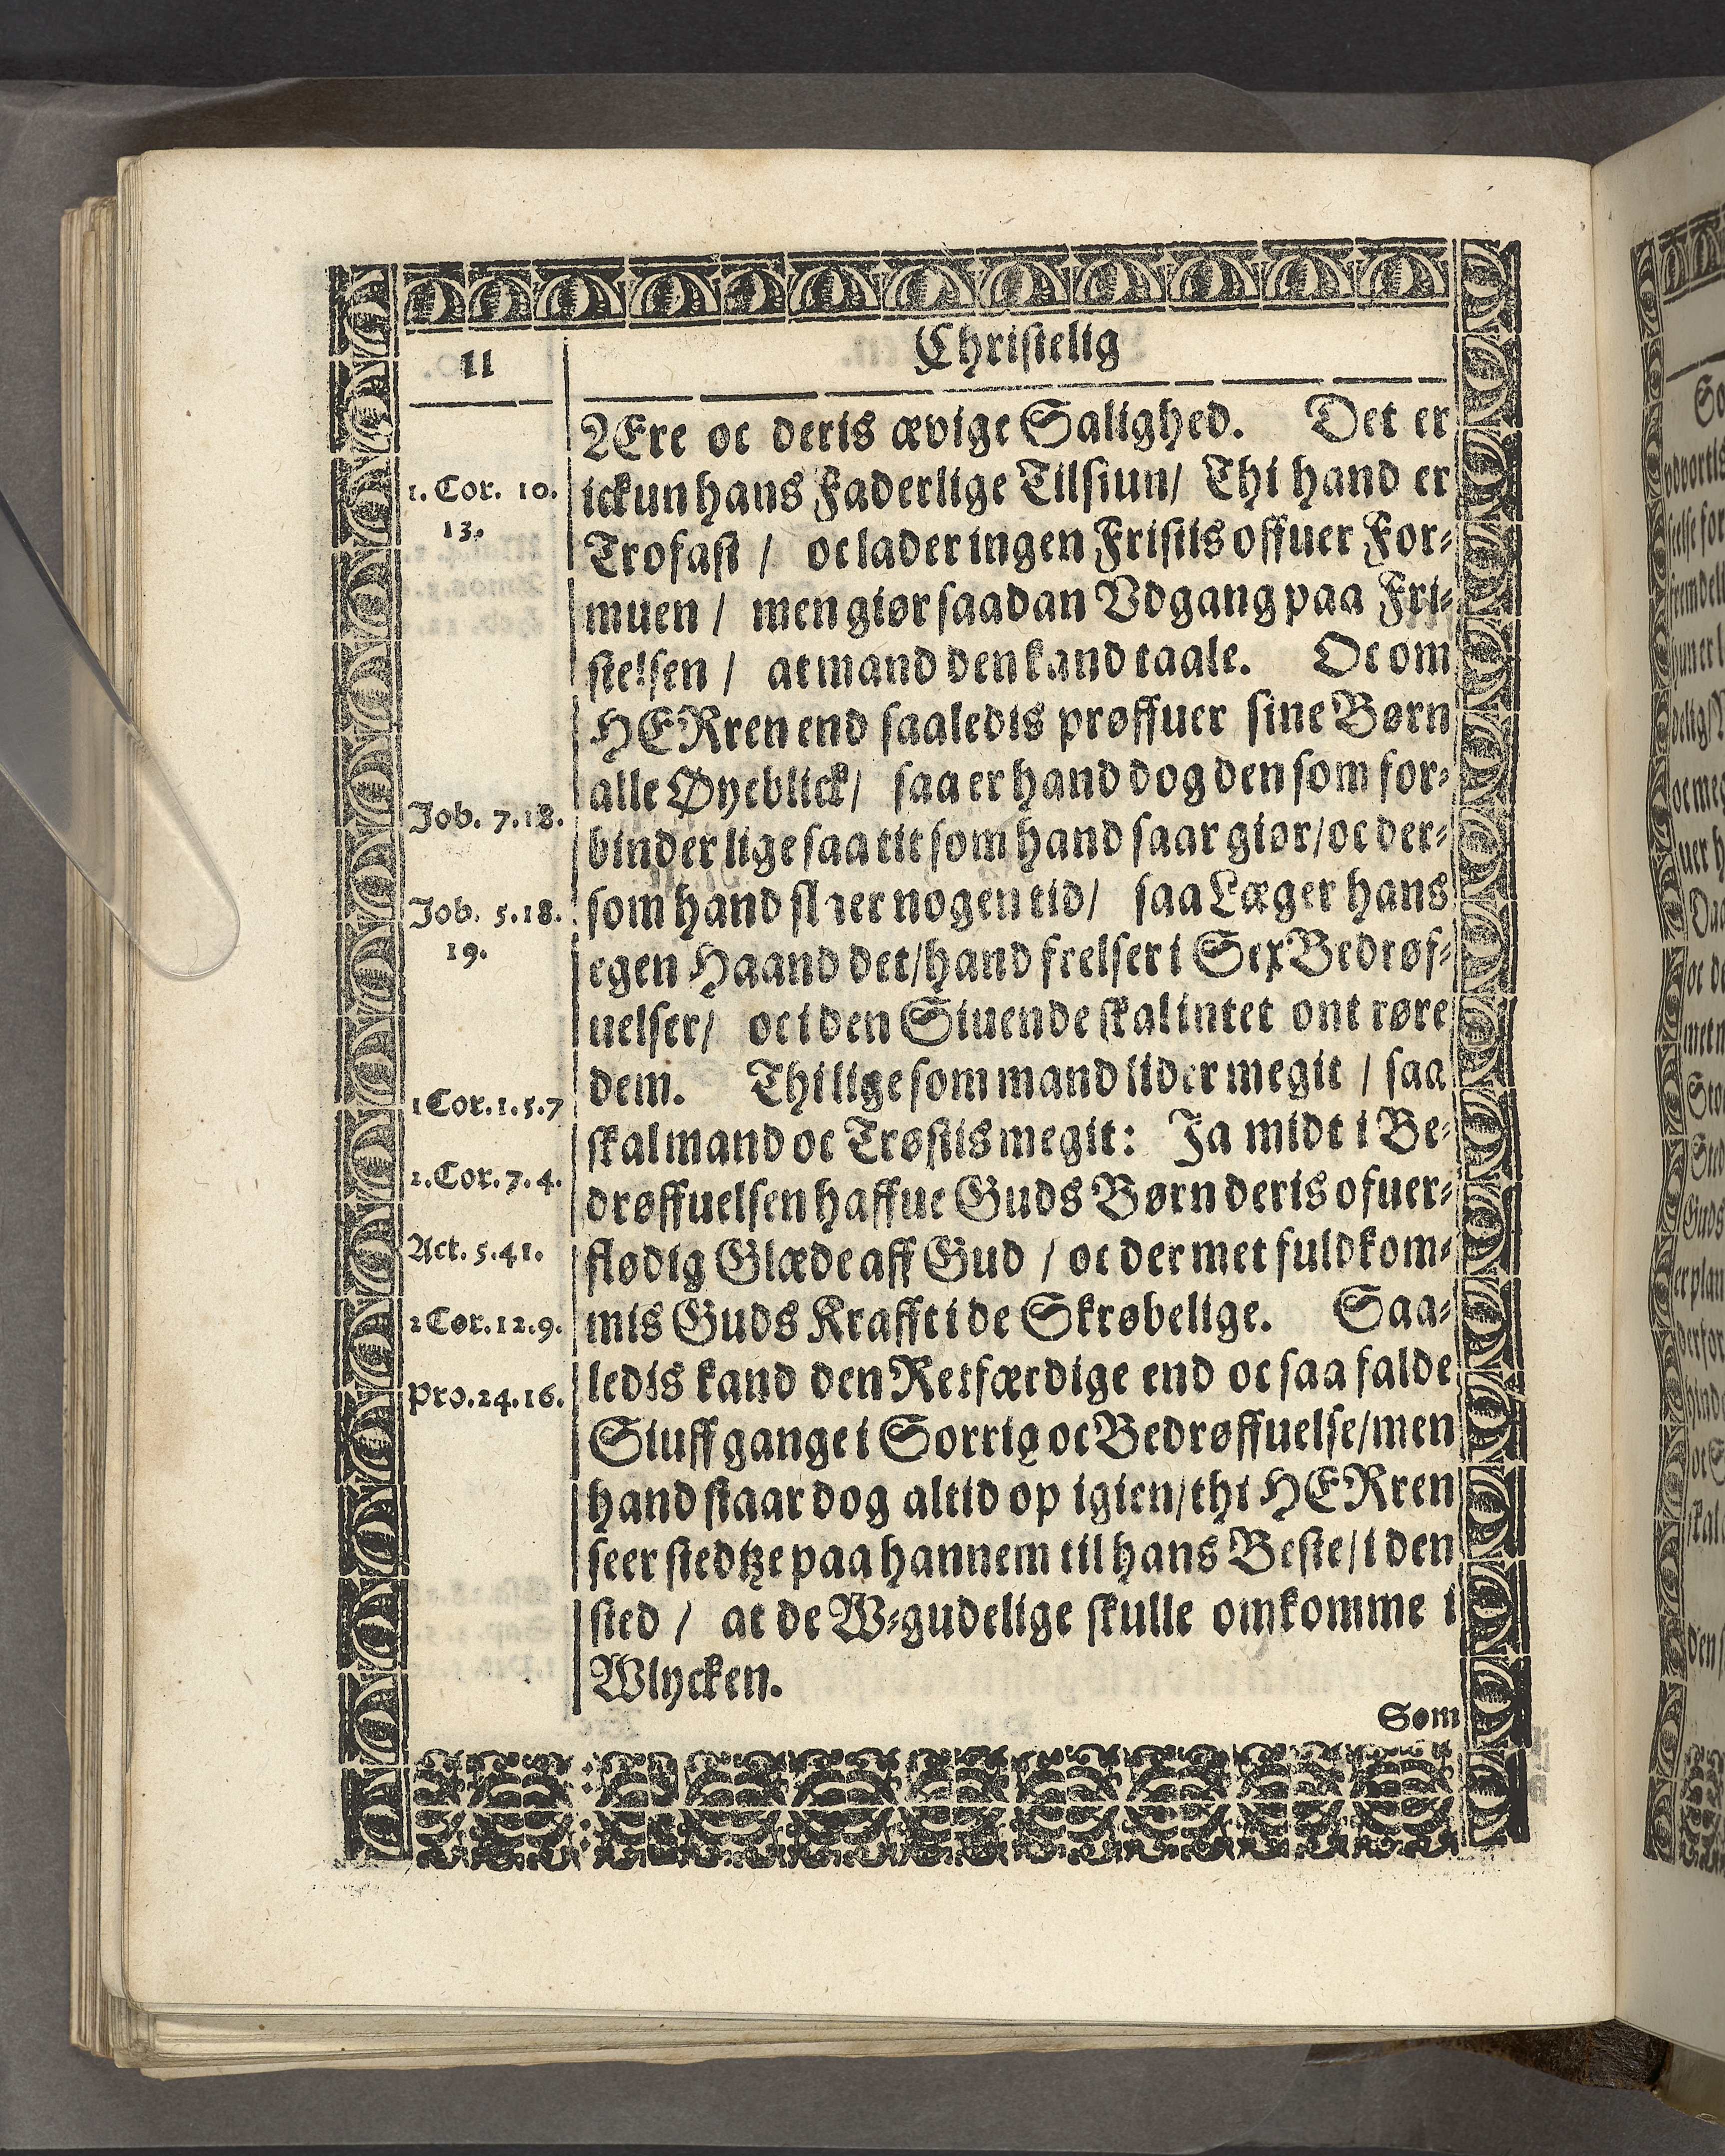 11
Christelig
ÆEre oc deris ævige Salighed. Det er
ickun hans Faderlige Tilsiun/ Thi hand er
Trofast / oc lader ingen Fristis offuer For-
muen / men giør saadan Vdgang paa Fri-
stelsen / at mand den kand taale. Oc om
HERren end saaledis prøffuer sine Børn
alle Øyeblick/ saa er hand dog den som for-
binder lige saa tit som hand saar giør/ oc der-
som hand slaer nogen tid/ saa Læger hans
egen Haand det/ hand frelser i Sex Bedrøf-
uelser/ oc i den Siuende skal intet ont røre
dem. Thi lige som mand lider megit / saa
skal mand oc Trøstis megit: Ja midt i Be-
drøffuelsen haffue Guds Børn deris ofuer-
flødig Glæde aff Gud / oc der met fuldkom-
mis Guds Krafft i de Skrøbelige. Saa-
ledis kand den Retfærdige end oc saa falde
Siuff gange i Sorrig oc Bedrøffuelse/ men
hand staar dog altid op igien/ thi HERren
seer stedtze paa hannem til hans Beste/ i den
sted / at de W-gudelige skulle omkomme i
Wlycken.
Som
1. Cor. 10.
13.
Job. 7.18.
Job. 5.18.
19.
1Cor.1.5.7
2.Cor.7.4.
Act. 5.41.
2Cor.12.9.
Pro.24.16.